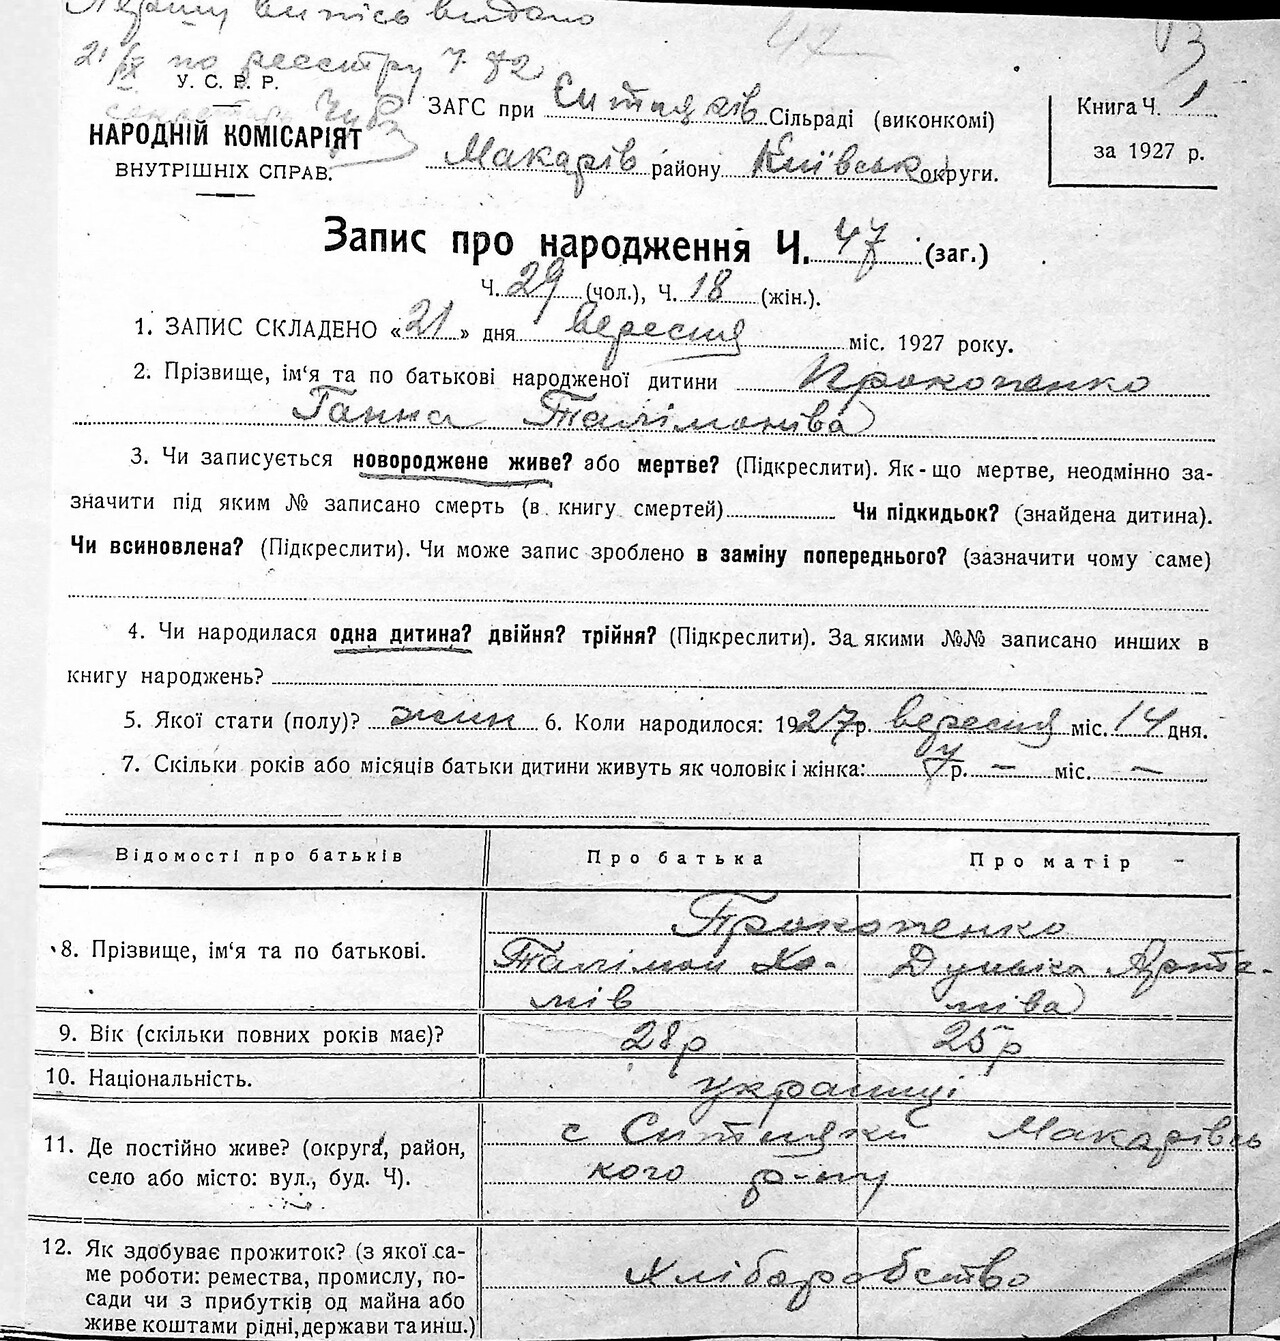 Першу випись видано
21/IX по реєстру Ч. 72
У. С. Р. Р.
секретарь
НАРОДНІЙ КОМІСАРІЯТ
ВНУТРІШНІХ СПРАВ.
47
ЗАГС при Ситняків Сільраді (виконкомі)
Макарів району Київськ округи.
Книга Ч. 1
за 1927 р.
Запис про народження Ч. 47 (заг.)
Ч. 29 (чол.), Ч. 18 (жін.).
1. ЗАПИС СКЛАДЕНО «21» дня вересня міс. 1927 року.
2. Прізвище, ім‘я та по батькові народженої дитини Прокопенко
Ганна Талімонівa
3. Чи записується новороджене живе? або мертве? (Підкреслити). Як-що мертве, неодмінно за-
значити під яким № записано смерть (в книгу смертей) Чи підкидьок? (знайдена дитина).
Чи всиновлена? (Підкреслити). Чи може запис зроблено в заміну попереднього? (зазначити чому саме)
4. Чи народилася одна дитина? двійня? трійня? (Підкреслити). За якими №№ записано инших в
книгу народжень?
5. Якої стати (полу)? жин 6. Коли народилося: 1927р. вересня міс. 14 дня.
7. Скільки років або місяців батьки дитини живуть як чоловік і жінка: 7 р. — міс. —
Відомості про батьків Про батька Про матір
8. Прізвище, ім‘я та по батькові. Прокопенко
Талімон Хо- Дунька Арта-
мів міва
9. Вік (скільки повних років має)? 28р 25р
10. Національність. украинці
11. Де постійно живе? (округа, район, с Ситняки Макарівсь
село або місто: вул., буд. Ч). кого р-ну
12. Як здобуває прожиток? (з якої са-
ме роботи: ремества, промислу, по- Хліборобство
сади чи з прибутків од майна або
живе коштами рідні, держави та инш.)